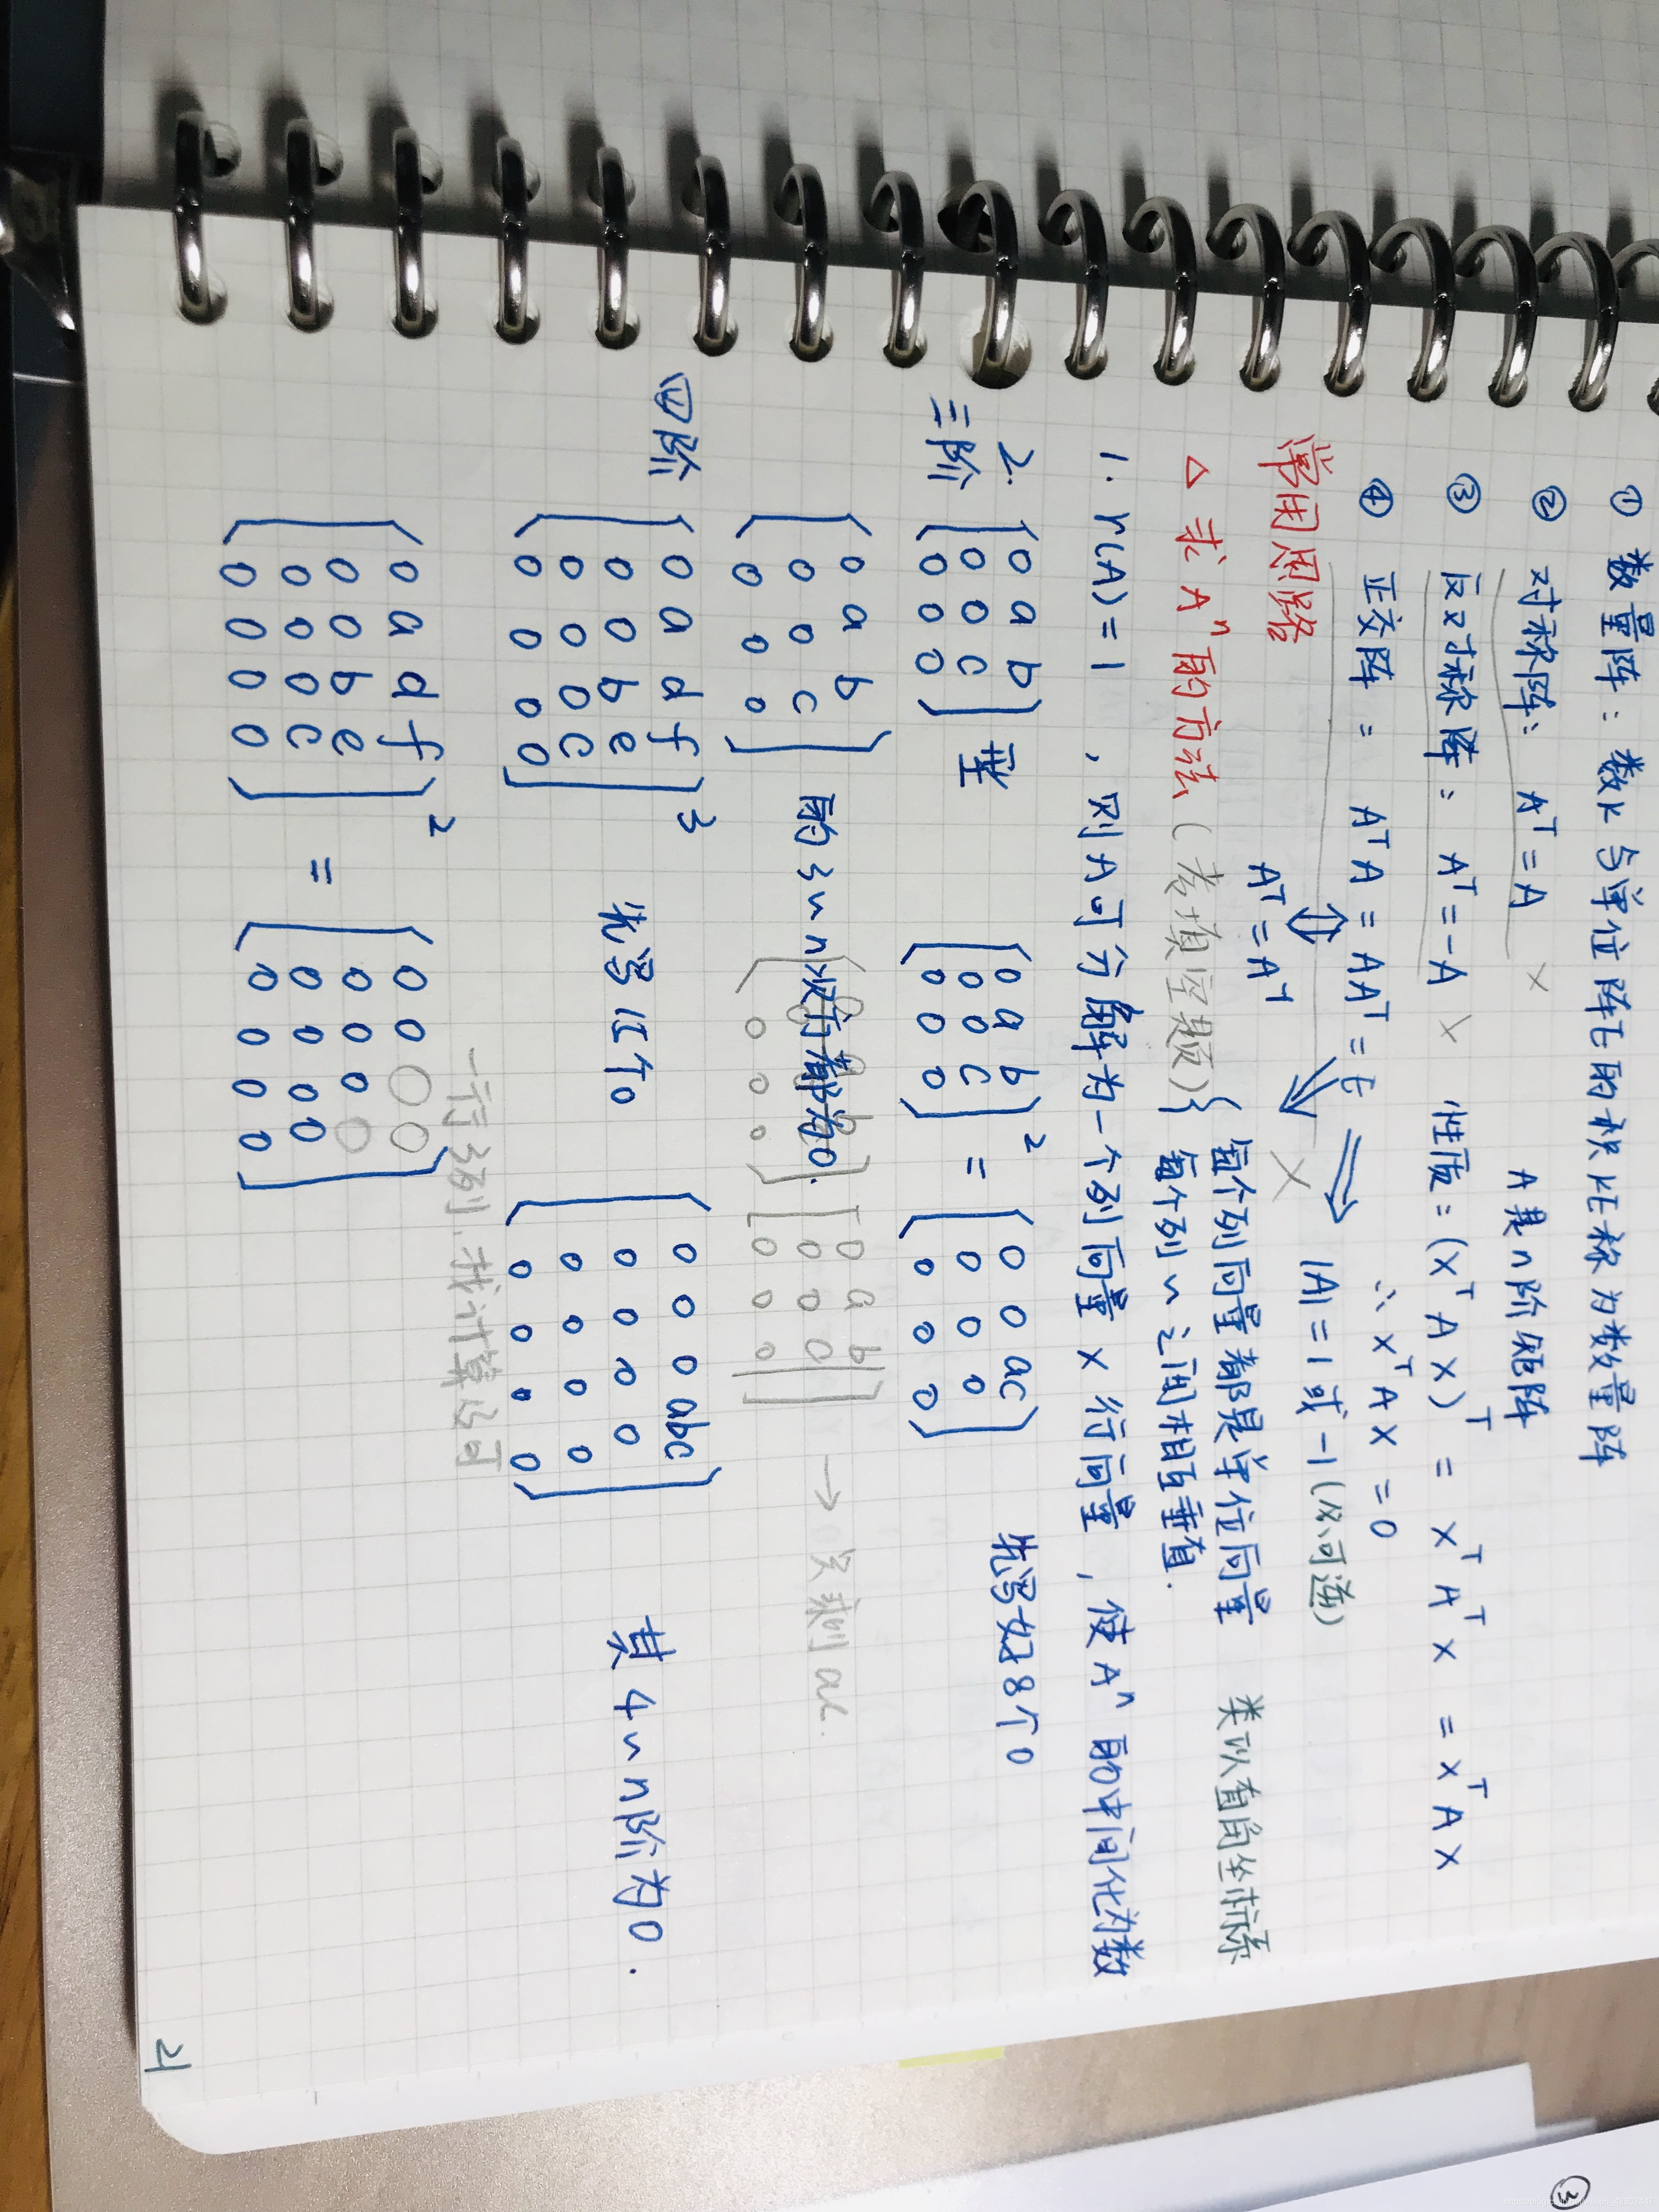 ① 数量阵：数k与单位阵E的积kE称为数量阵
② 对称阵： Aᵀ=A × A是n阶矩阵
③ 反对称阵： Aᵀ=-A × 性质：(xᵀAx)ᵀ = xᵀAᵀx = xᵀAx
∴ xᵀAx = 0
④ 正交阵： AᵀA = AAᵀ = E ⇒ |A| = 1 或 -1 (必可逆)
⇕
Aᵀ = A⁻¹ ⇒ ×
常用思路
{ 每个列向量都是单位向量 类似直角坐标系
每个列 ~ 之间相互垂直.
△ 求Aⁿ的方法 (考填空题)
1. r(A)=1 , 则A可分解为一个列向量 × 行向量 , 使Aⁿ的中间化为数
2.
三阶 (0 a b 型 (0 a b)² = (0 0 ac 先写好8个0
0 0 c 0 0 c 0 0 0
0 0 0) 0 0 0 0 0 0)
(0 a b
0 0 c 的3~n次方都为0.
0 0 0)
0 a b
0 0 0
0 0 0
→ 只剩ac.
四阶 (0 a d f)³ (0 0 0 abc
0 0 b e 先写15个0 0 0 0 0 其4~n阶为0.
0 0 0 c 0 0 0 0
0 0 0 0 0 0 0 0)
一行3列.找计算即可
(0 a d f)² = (0 0 ○ ○
0 0 b e 0 0 0 ○
0 0 0 c 0 0 0 0
0 0 0 0 0 0 0 0)
21
③